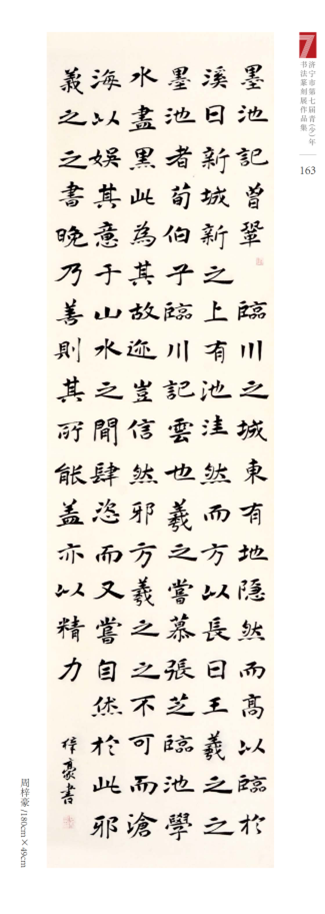 7
济宁市第七届青（少）年
书法篆刻展作品集
163
墨池記曾鞏 臨川之城東有地隱然而高以臨於
溪曰新城新之上有池洼然而方以長曰王羲之之
墨池者荀伯子臨川記雲也羲之嘗慕張芝臨池學
水盡黑此為其故迹豈信然邪方羲之之不可而滄
海以娛其意于山水之間肆恣而又嘗自烋於此邪
羲之之書晚乃善則其所能蓋亦以精力
梓豪書
周梓豪 /180cm×49cm